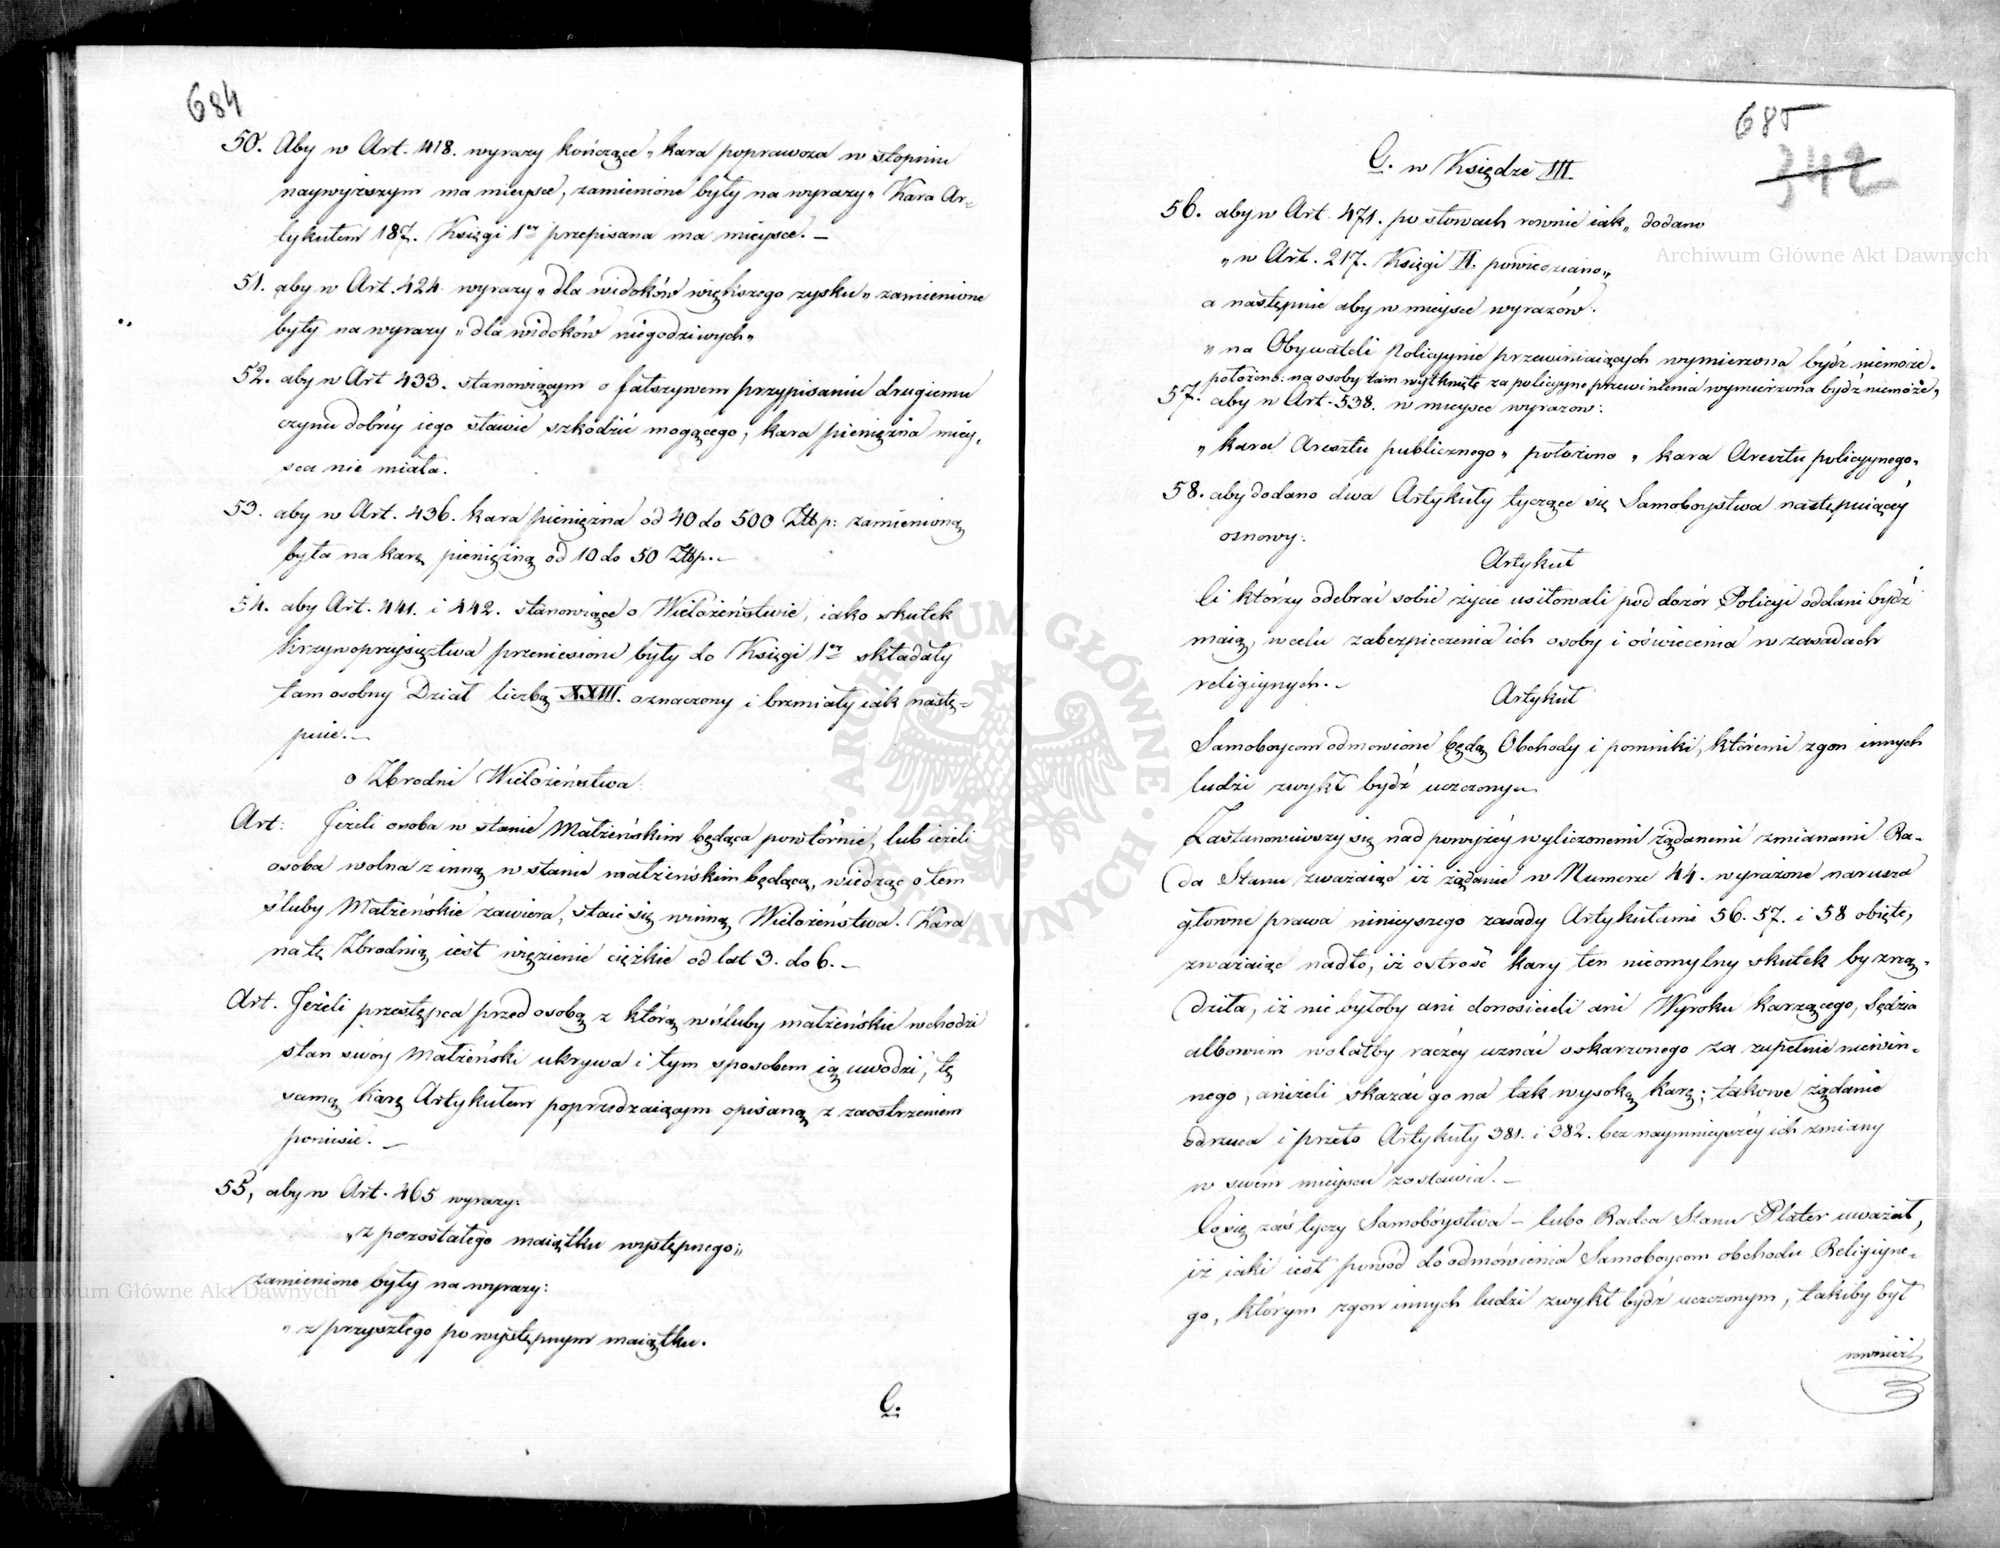 684
50. Aby w Art. 418. wyrazy kończące „kara poprawcza w stopniu
naywyższym ma mieysce, zamienione były na wyrazy „Kara Ar-
tykułem 187. Księgi 1ey przepisana ma mieysce. —
51. aby w Art. 424 wyrazy „dla widoków większego zysku„ zamienione
były na wyrazy „dla widoków niegodziwych„
52. aby w Art 433. stanowiącym o fałszywem przypisaniu drugiemu
czynu dobréy iego sławie szkodzić mogącego, kara pieniężna miey„
sca nie miała.
53. aby w Art. 436. kara pieniężna od 40 do 500 Złłp: zamienioną
była na karę pieniężną od 10 do 50 Złłp.—
54. aby Art. 441. i 442. stanowiące o Wielożeństwie, iako skutek
krzywoprzysięztwa przeniesione były do Księgi 1ey składały
tam osobny Dział liczbą XXIII. oznaczony i brzmiały iak nastę=
puie.—
o Zbrodni Wielożeństwa.
Art: Jeżeli osoba w stanie Małżeńskim będąca powtórnie, lub ieżeli
osoba wolna z inną w stanie małżenskim będącą, wiedząc o tem
śluby Małżeńskie zawiera, staie się winną Wielożeństwa. Kara
na tę Zbrodnią iest więzienie ciężkie od lat 3. do 6. —
Art. Jeżeli przestępca przed osobą z którą w śluby małżeńskie wchodzi
stan swóy Małżeński ukrywa i tym sposobem ią uwodzi, tę
samą karę Artykułem poprzedzaiącym opisaną z zaostrzeniem
poniesie. —
55, aby w Art. 465 wyrazy:
„z pozostałego maiątku występnego„
zamienione były na wyrazy:
„z przyszłego po występnym maiątku.
C.
685
342
C. w Księdze III.
56. aby w Art. 471. po słowach rownie iak„ dodano
„w Art. 217. Księgi II. powiedziano„
a następnie aby w mieysce wyrazów.
„na Obywateli Policyinie przewiniaiących wymierzona bydź niemoże.
położono: na osoby tam wytknięte za policyjne przewinienia wymierzona bydź niemoże„
57. aby w Art. 538. w mieysce wyrazow:
„kara Aresztu publicznego„ położono „kara Aresztu policyynego„
58. aby dodano dwa Artykuły tyczące się Samoboystwa następuiącéy
osnowy:
Artykuł
Ci którzy odebrać sobie życie usiłowali pod dozór Policyi oddani bydź
maią, w celu zabezpieczenia ich osoby i oświecenia w zasadach
religiynych.—
Artykuł
Samoboycom odmowione będą Obchody i pomniki, któremi zgon innych
ludzi zwykł bydź uczczony—
Zastanowiwszy się nad powyżéy wyliczonemi żądanemi zmianami Ra-
da Stanu zważaiąc iż żądanie w Numerze 44. wyrażone narusza
głowne prawa ninieyszego zasady Artykułami 56. 57. i 58 obięte,
zważaiąc nadto, iż ostrość kary ten nieomylny skutek by zrzą-
dziła, iż nie byłoby ani donosicieli ani Wyroku karzącego, Sędzia
albowiem wolałby raczéy uznać oskarzonego za zupełnie niewin-
nego, aniżeli skazać go na tak wysoką karę; takowe żądanie
odrzuca i przeto Artykuły 381. i 382. bez naymnieyszéy ich zmiany
w swem mieyscu zostawia. —
Co się zaś tyczy Samobóystwa – lubo Radca Stanu Plater uważał,
iż iaki iest powód do odmówienia Samoboycom obchodu Religiyne-
go, którym zgon innych ludzi zwykł bydź uczczonym, takiby był
rownież
Archiwum Główne Akt Dawnych
Archiwum Główne Akt Dawnych
ARCHIWUM GŁÓWNE AKT DAWNYCH